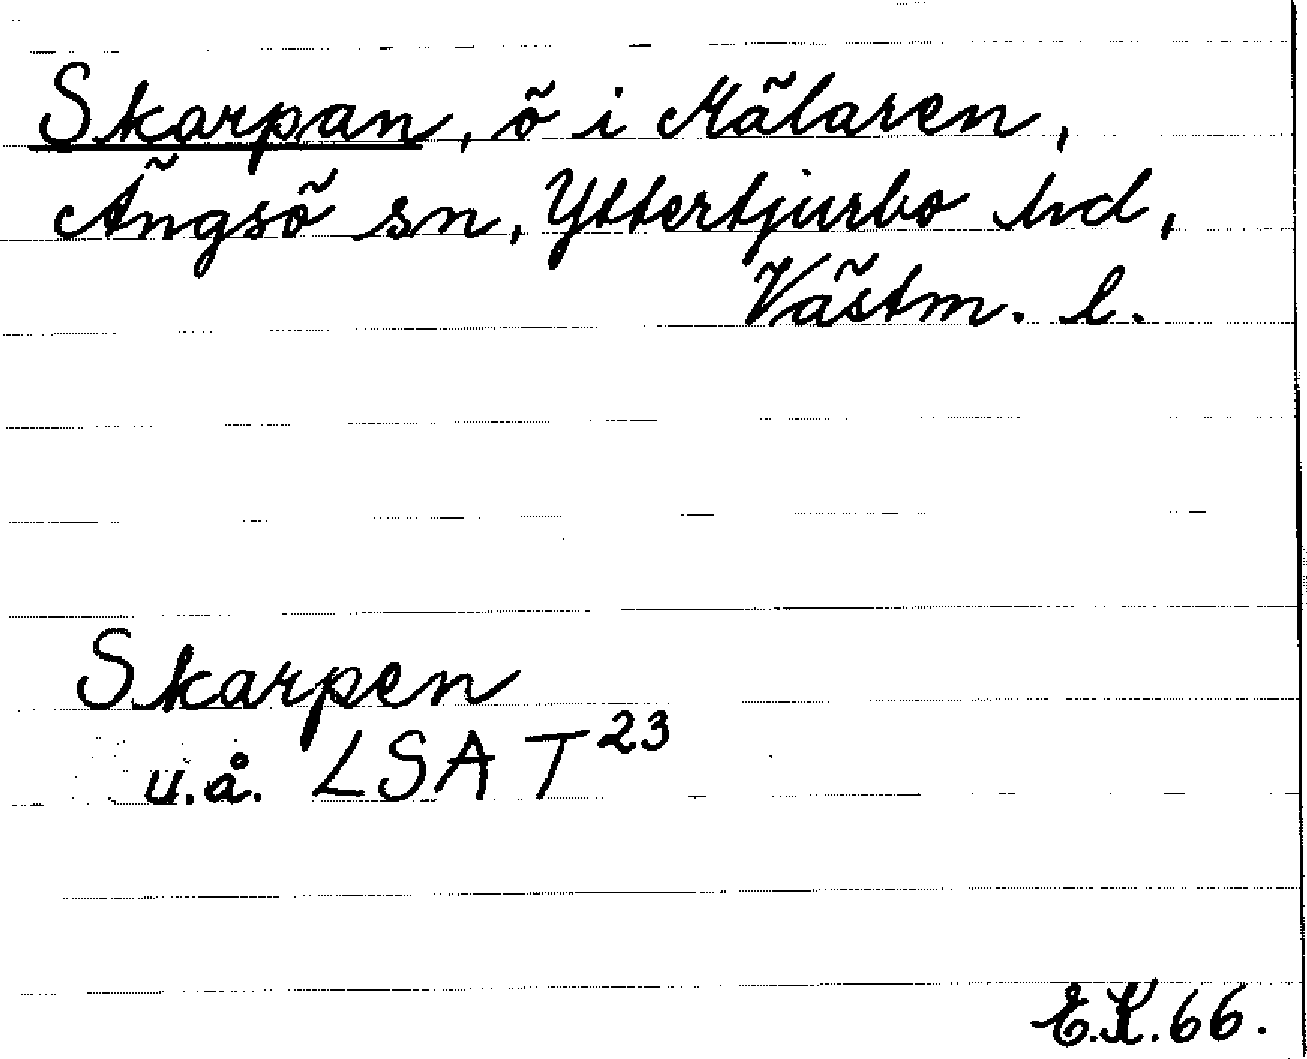 Skarpan, ö i Mälaren,
Ängsö sn, Yttertjurbo hd,
Västm. l.
Skarpen
u.å. LSA T 23
E.K. 66.